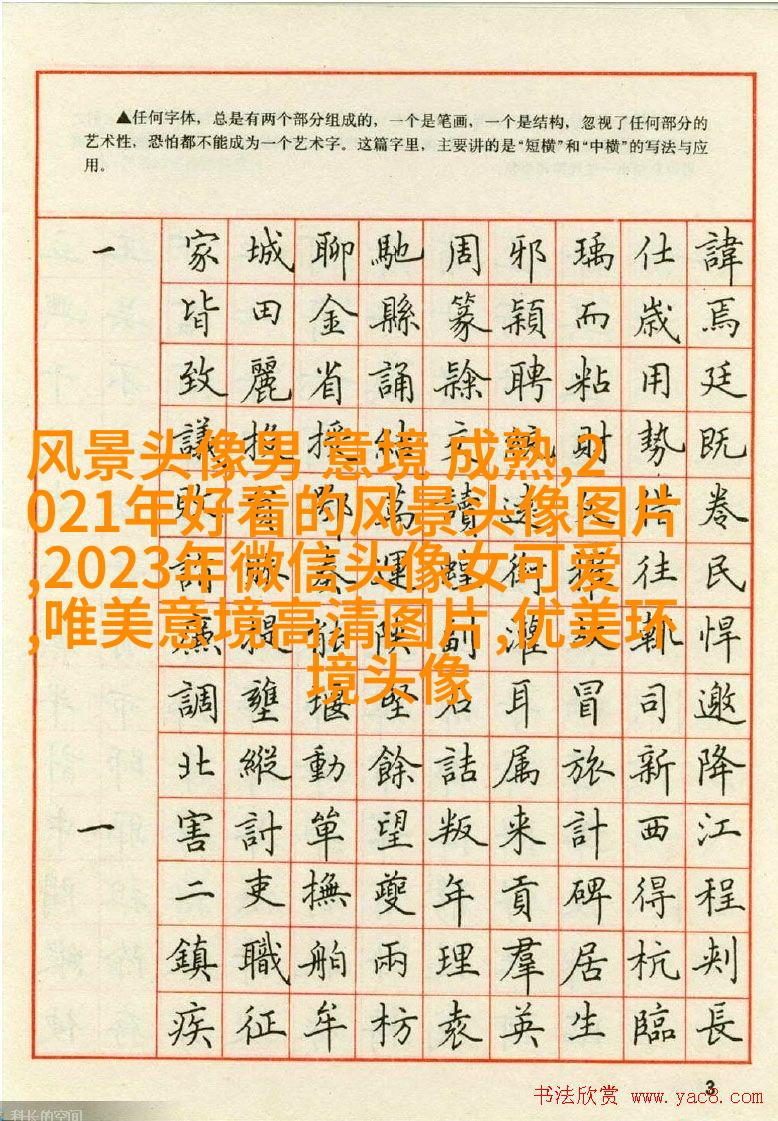 ▲任何字体，总是有两个部分组成的，一个是笔画，一个是结构，忽视了任何部分的
艺术性，恐怕都不能成为一个艺术字。这篇字里，主要讲的是“短横”和“中横”的写法与应
用。
一 家城聊馳周邪瑀仕諱
皆田金縣篆潁而歲焉
致麗省誦隸聘粘用廷
議 勢既
风景头像男 意境 成熟,2
021年好看的风景头像图片
,2023年微信头像女可爱
,唯美意境高清图片,优美环
境头像
卷
往民
悍
調壅堰堅石耳冒司邀
北縱動餘詰属旅新降
一 害討單望叛来計西江
二吏撫夔年貢碑得程
鎮職舶兩理羣居杭刺
疾征牟枋袁英生臨長
3
书法欣赏 www.yac8.com
科长的空间